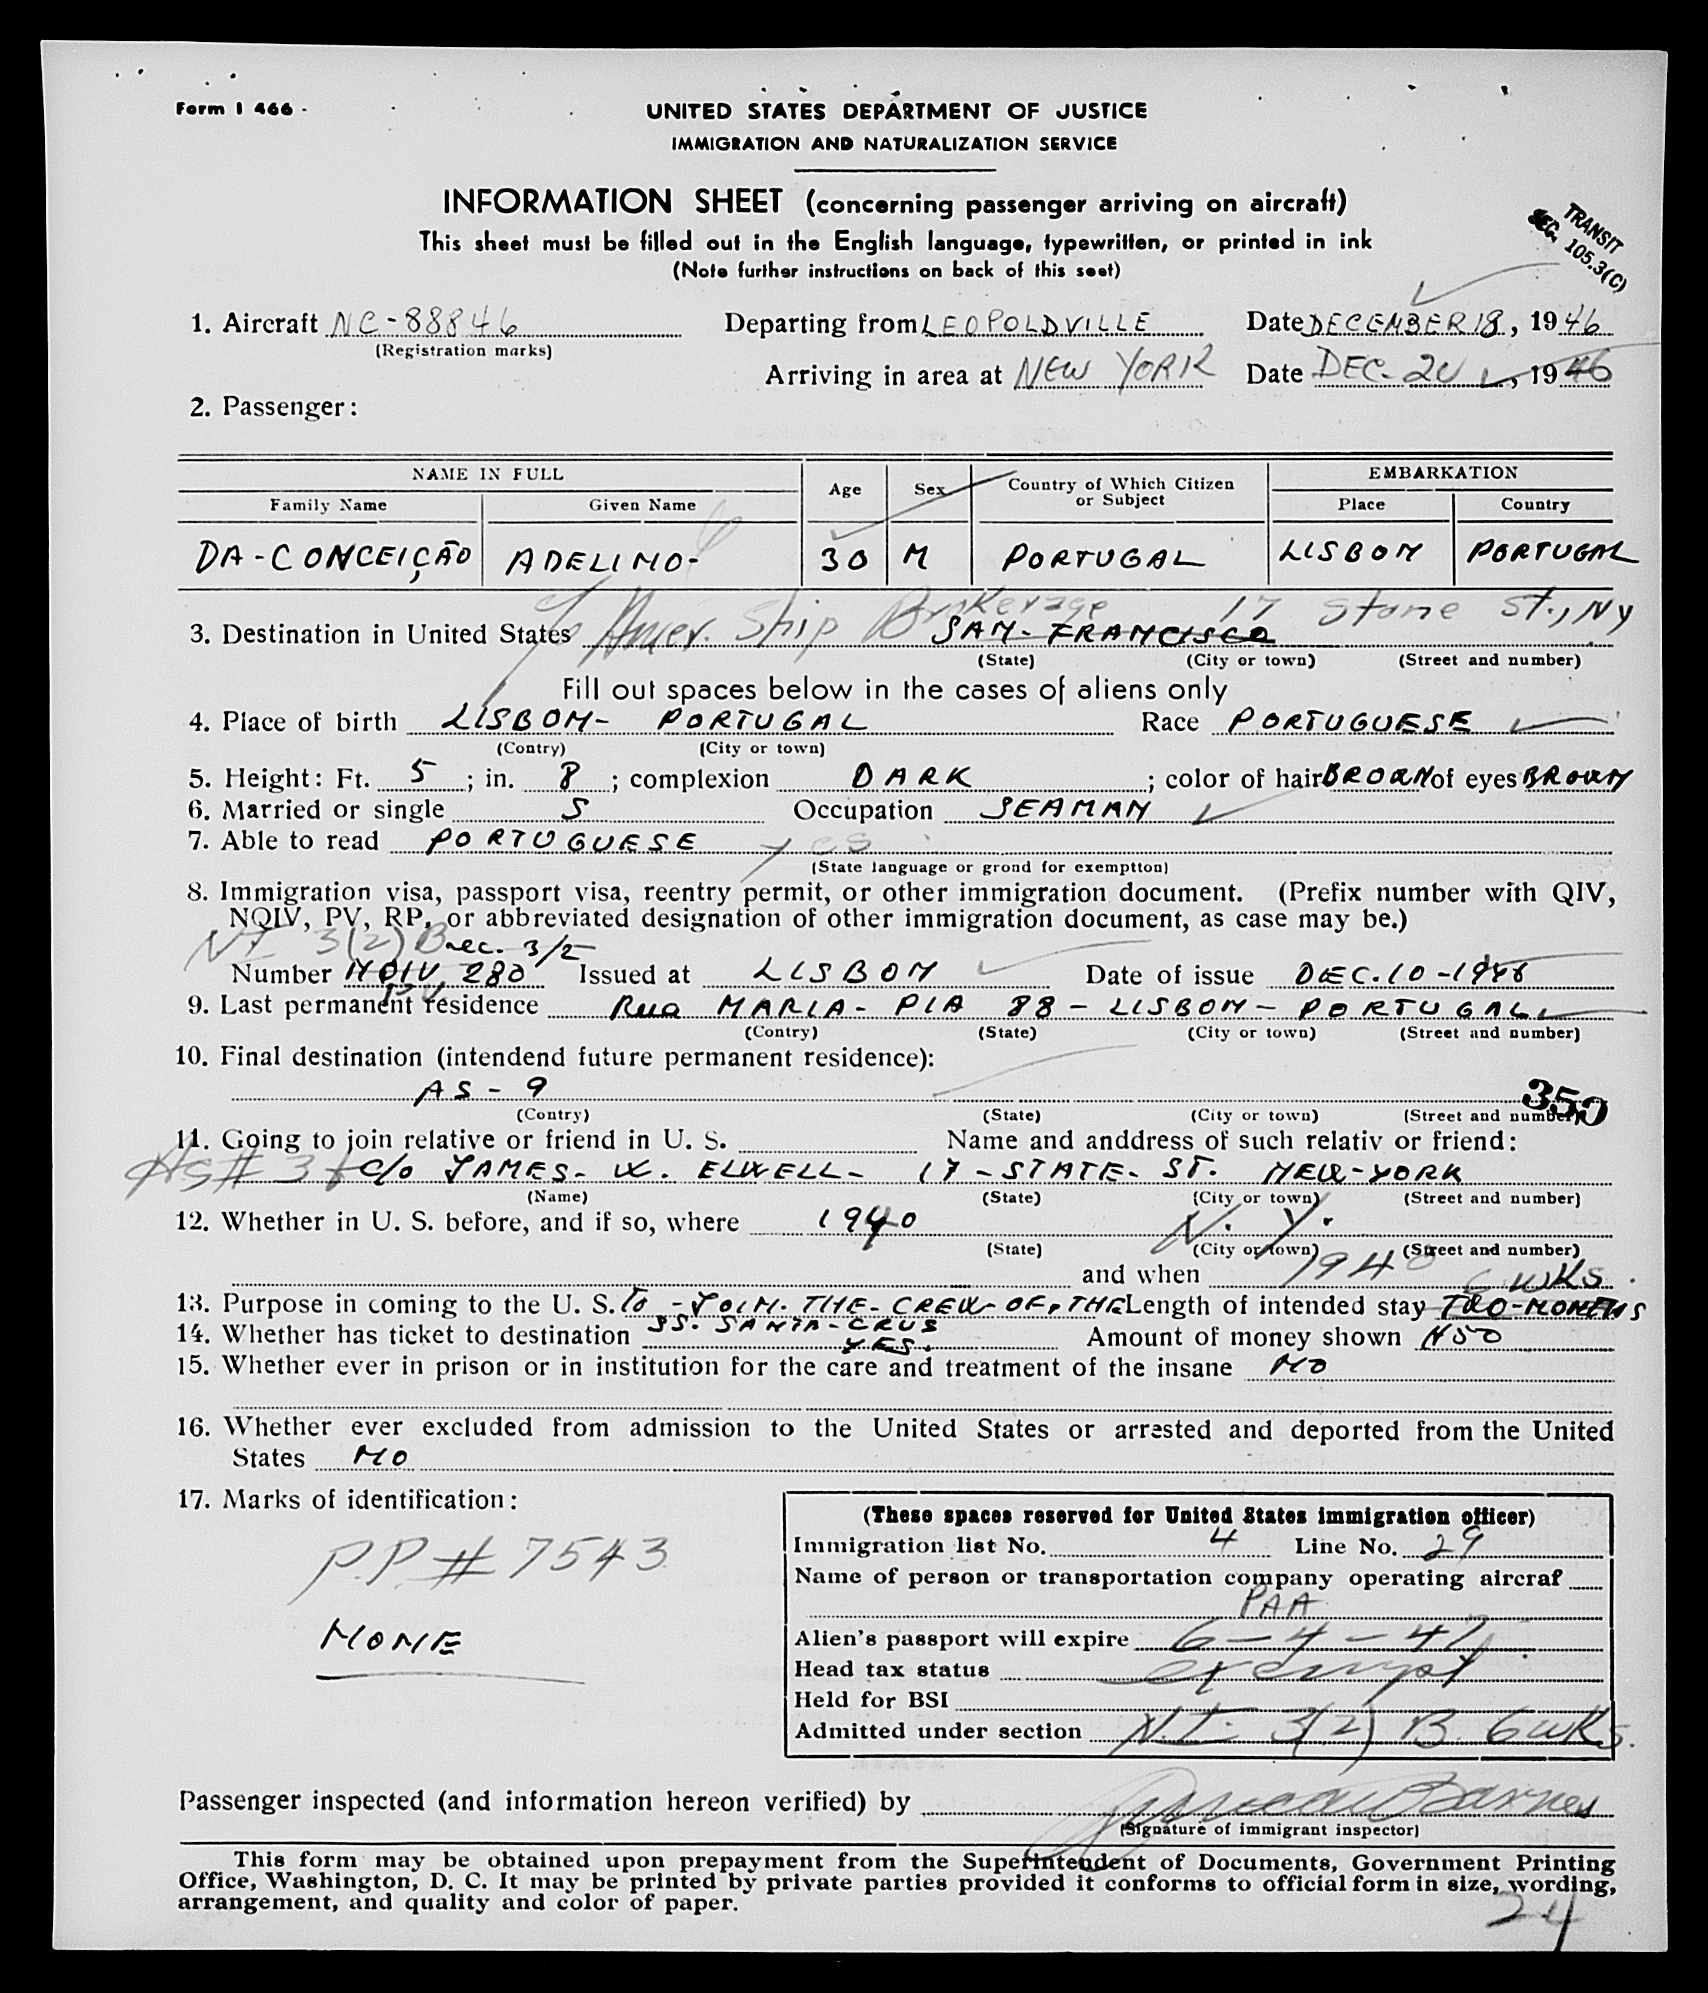 Form I 466
UNITED STATES DEPARTMENT OF JUSTICE
IMMIGRATION AND NATURALIZATION SERVICE
INFORMATION SHEET (concerning passenger arriving on aircraft)
This sheet must be filled out in the English language, typewritten, or printed in ink
(Note further instructions on back of this seet)
TRANSIT
SEC. 105.3(C)
1. Aircraft NC-88846 Departing from LEOPOLDVILLE Date DECEMBER 18, 1946
(Registration marks)
Arriving in area at NEW YORK Date DEC. 20, 1946
2. Passenger:
NAME IN FULL Age Sex Country of Which Citizen or Subject EMBARKATION
Family Name Given Name Place Country
DA-CONCEIÇÃO ADELINO- 30 M PORTUGAL LISBON PORTUGAL
c/o Amer. Ship Brokerage 17 Stone St., NY
3. Destination in United States SAN-FRANCISCO
(State) (City or town) (Street and number)
Fill out spaces below in the cases of aliens only
4. Place of birth LISBON- PORTUGAL Race PORTUGUESE
(Contry) (City or town)
5. Height: Ft. 5; in. 8; complexion DARK; color of hair BROWN of eyes BROWN
6. Married or single S Occupation SEAMAN
7. Able to read PORTUGUESE yes
(State language or grond for exemptton)
8. Immigration visa, passport visa, reentry permit, or other immigration document. (Prefix number with QIV,
NQIV, PV, RP, or abbreviated designation of other immigration document, as case may be.)
NI 3(2)B sec. 3/2
Number NQIV 280 Issued at LISBON Date of issue DEC. 10-1946
PV
9. Last permanent residence Rua MARIA-PIA 88-LISBON-PORTUGAL
(Contry) (State) (City or town) (Street and number)
10. Final destination (intendend future permanent residence):
AS-9
350
(Contry) (State) (City or town) (Street and number)
11. Going to join relative or friend in U. S. Name and anddress of such relativ or friend:
AS# 3 c/o JAMES-W. ELWELL- 17-STATE-ST. NEW-YORK
(Name) (State) (City or town) (Street and number)
12. Whether in U. S. before, and if so, where 1940 N.Y.
(State) (City or town) (Street and number)
and when 1940
6 WKS.
13. Purpose in coming to the U. S. To-JOIN.THE-CREW-OF,THE Length of intended stay TWO-MONTHS
SS. SANTA-CRUS
14. Whether has ticket to destination YES. Amount of money shown N50
15. Whether ever in prison or in institution for the care and treatment of the insane NO
16. Whether ever excluded from admission to the United States or arrested and deported from the United
States NO
17. Marks of identification:
P.P.# 7543
NONE
(These spaces reserved for United States immigration officer)
Immigration list No. 4 Line No. 29
Name of person or transportation company operating aircraf
PAA
Alien's passport will expire 6-4-47
Head tax status exempt
Held for BSI
Admitted under section N.I. 3(2)B 6 WKS.
Passenger inspected (and information hereon verified) by Barnes
(Signature of immigrant inspector)
This form may be obtained upon prepayment from the Superintendent of Documents, Government Printing
Office, Washington, D. C. It may be printed by private parties provided it conforms to official form in size, wording,
arrangement, and quality and color of paper.
24